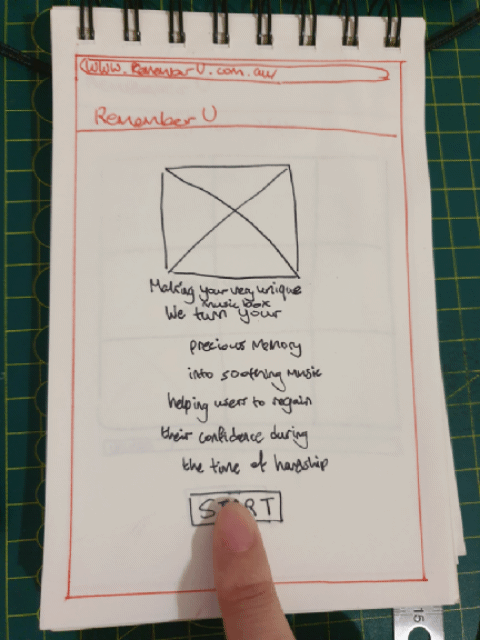 www.RememberU.com.au/
Remember U
Making your very unique
music box
We turn your
precious Memory
into soothing Music
helping users to regain
their confidence during
the time of hardship
START
15